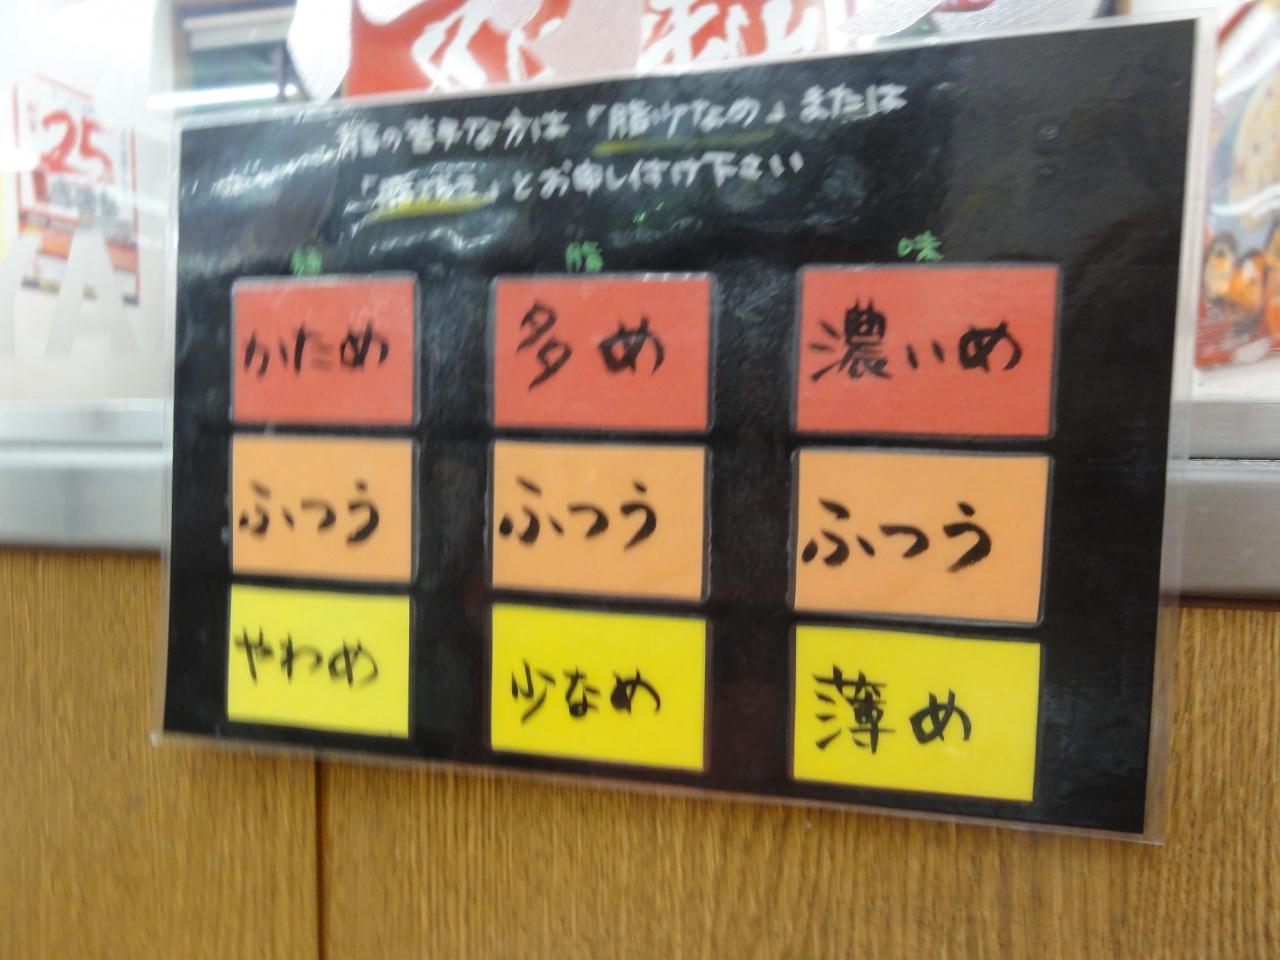 脂の苦手な方は「脂少なめ」または
「脂抜き」とお申し付け下さい
麺 脂 味
かため 多め 濃いめ
ふつう ふつう ふつう
やわめ 少なめ 薄め
25